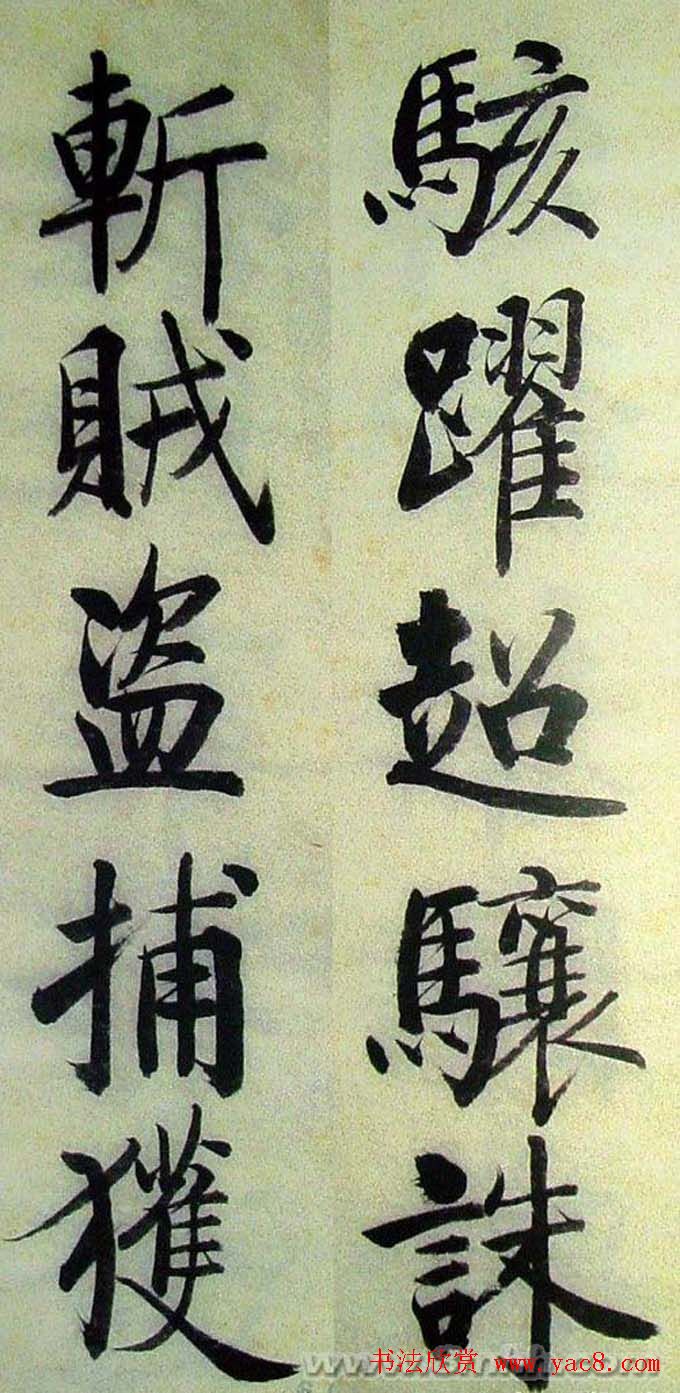 駭躍超驤誅
斬賊盜捕獲
书法欣赏 www.yac8.com